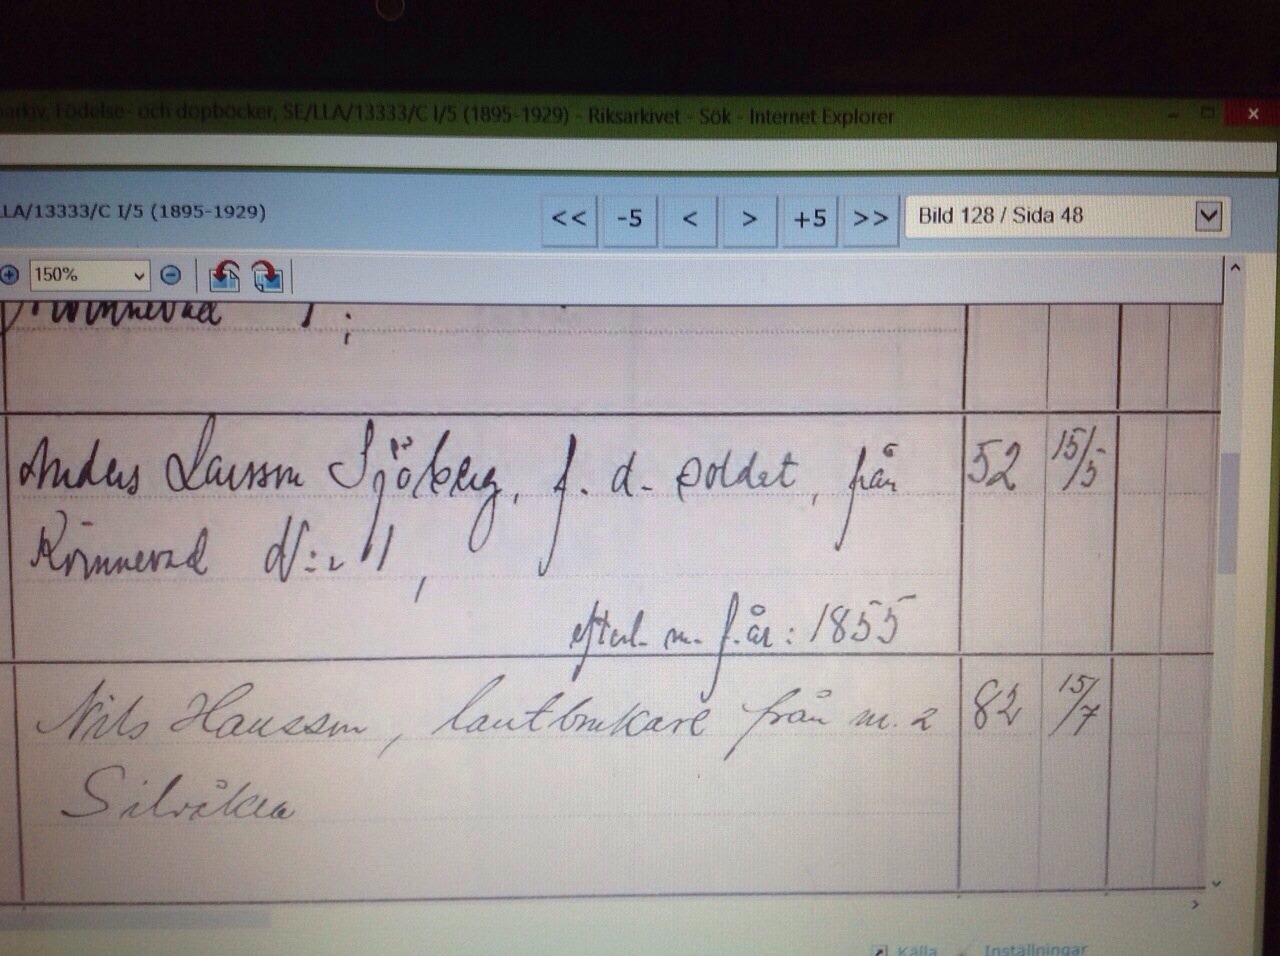 arkiv, Födelse- och dopböcker, SE/LLA/13333/C I/5 (1895-1929) - Riksarkivet - Sök - Internet Explorer
LLA/13333/C I/5 (1895-1929)
<< -5 < > +5 >> Bild 128 / Sida 48
150%
Anders Larsson Sjöberg, f. d. soldat, från 52 15/5
Rönnevad N:o 11,
efterl. m. f. år: 1855
Nils Hansson, lantbrukare från nr. 2 82 15/7
Silvåkra
Källa Inställningar